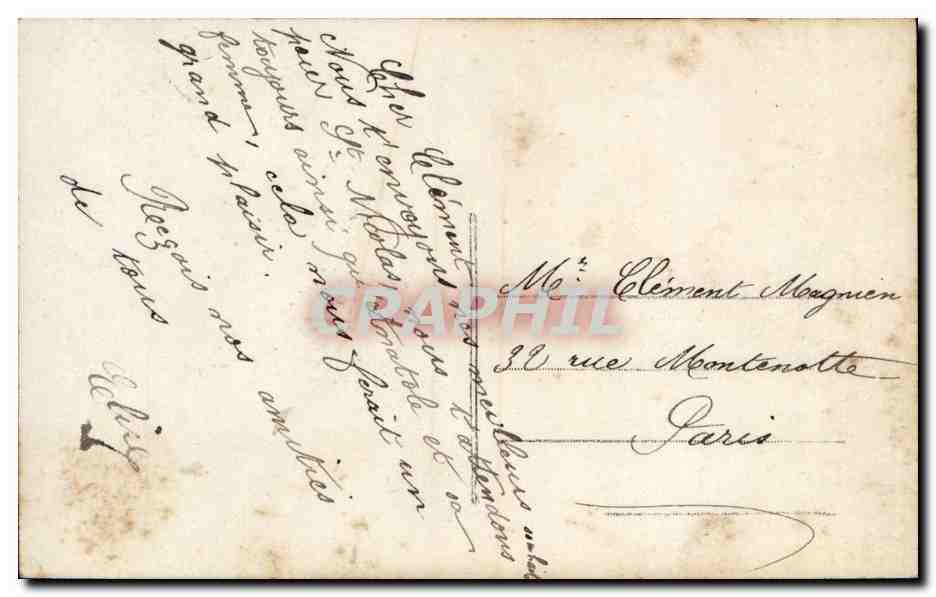 Cher Clément nos meilleurs souhaits
Nous t'envoyons tous t'attendons
pour St Nicolas, Anatole et sa
toujours ainsi que
femme, cela nous ferait un
grand plaisir.
Reçois nos amitiés
de tous
Mr. Clément Magnien
32 rue Montenotte
Paris
CRAPHIL